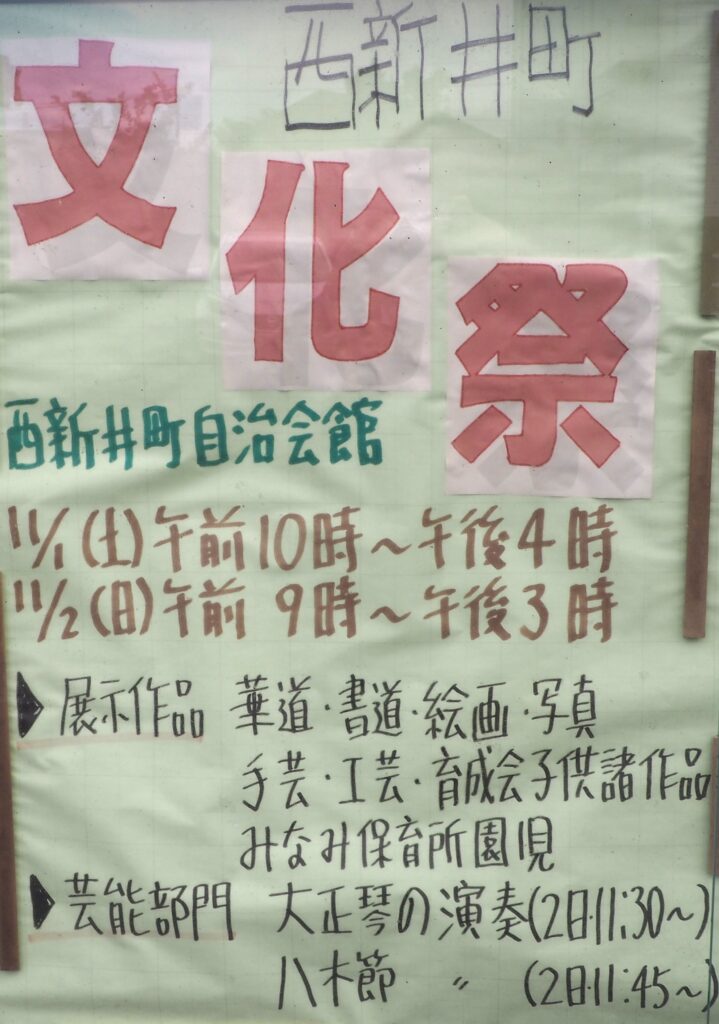 西新井町
文化祭
西新井町自治会館
11/1(土)午前10時～午後4時
11/2(日)午前 9時～午後3時
▶展示作品 華道・書道・絵画・写真
手芸・工芸・育成会子供諸作品
みなみ保育所園児
▶芸能部門 大正琴の演奏(2日11:30～)
八木節 〃 (2日11:45～)